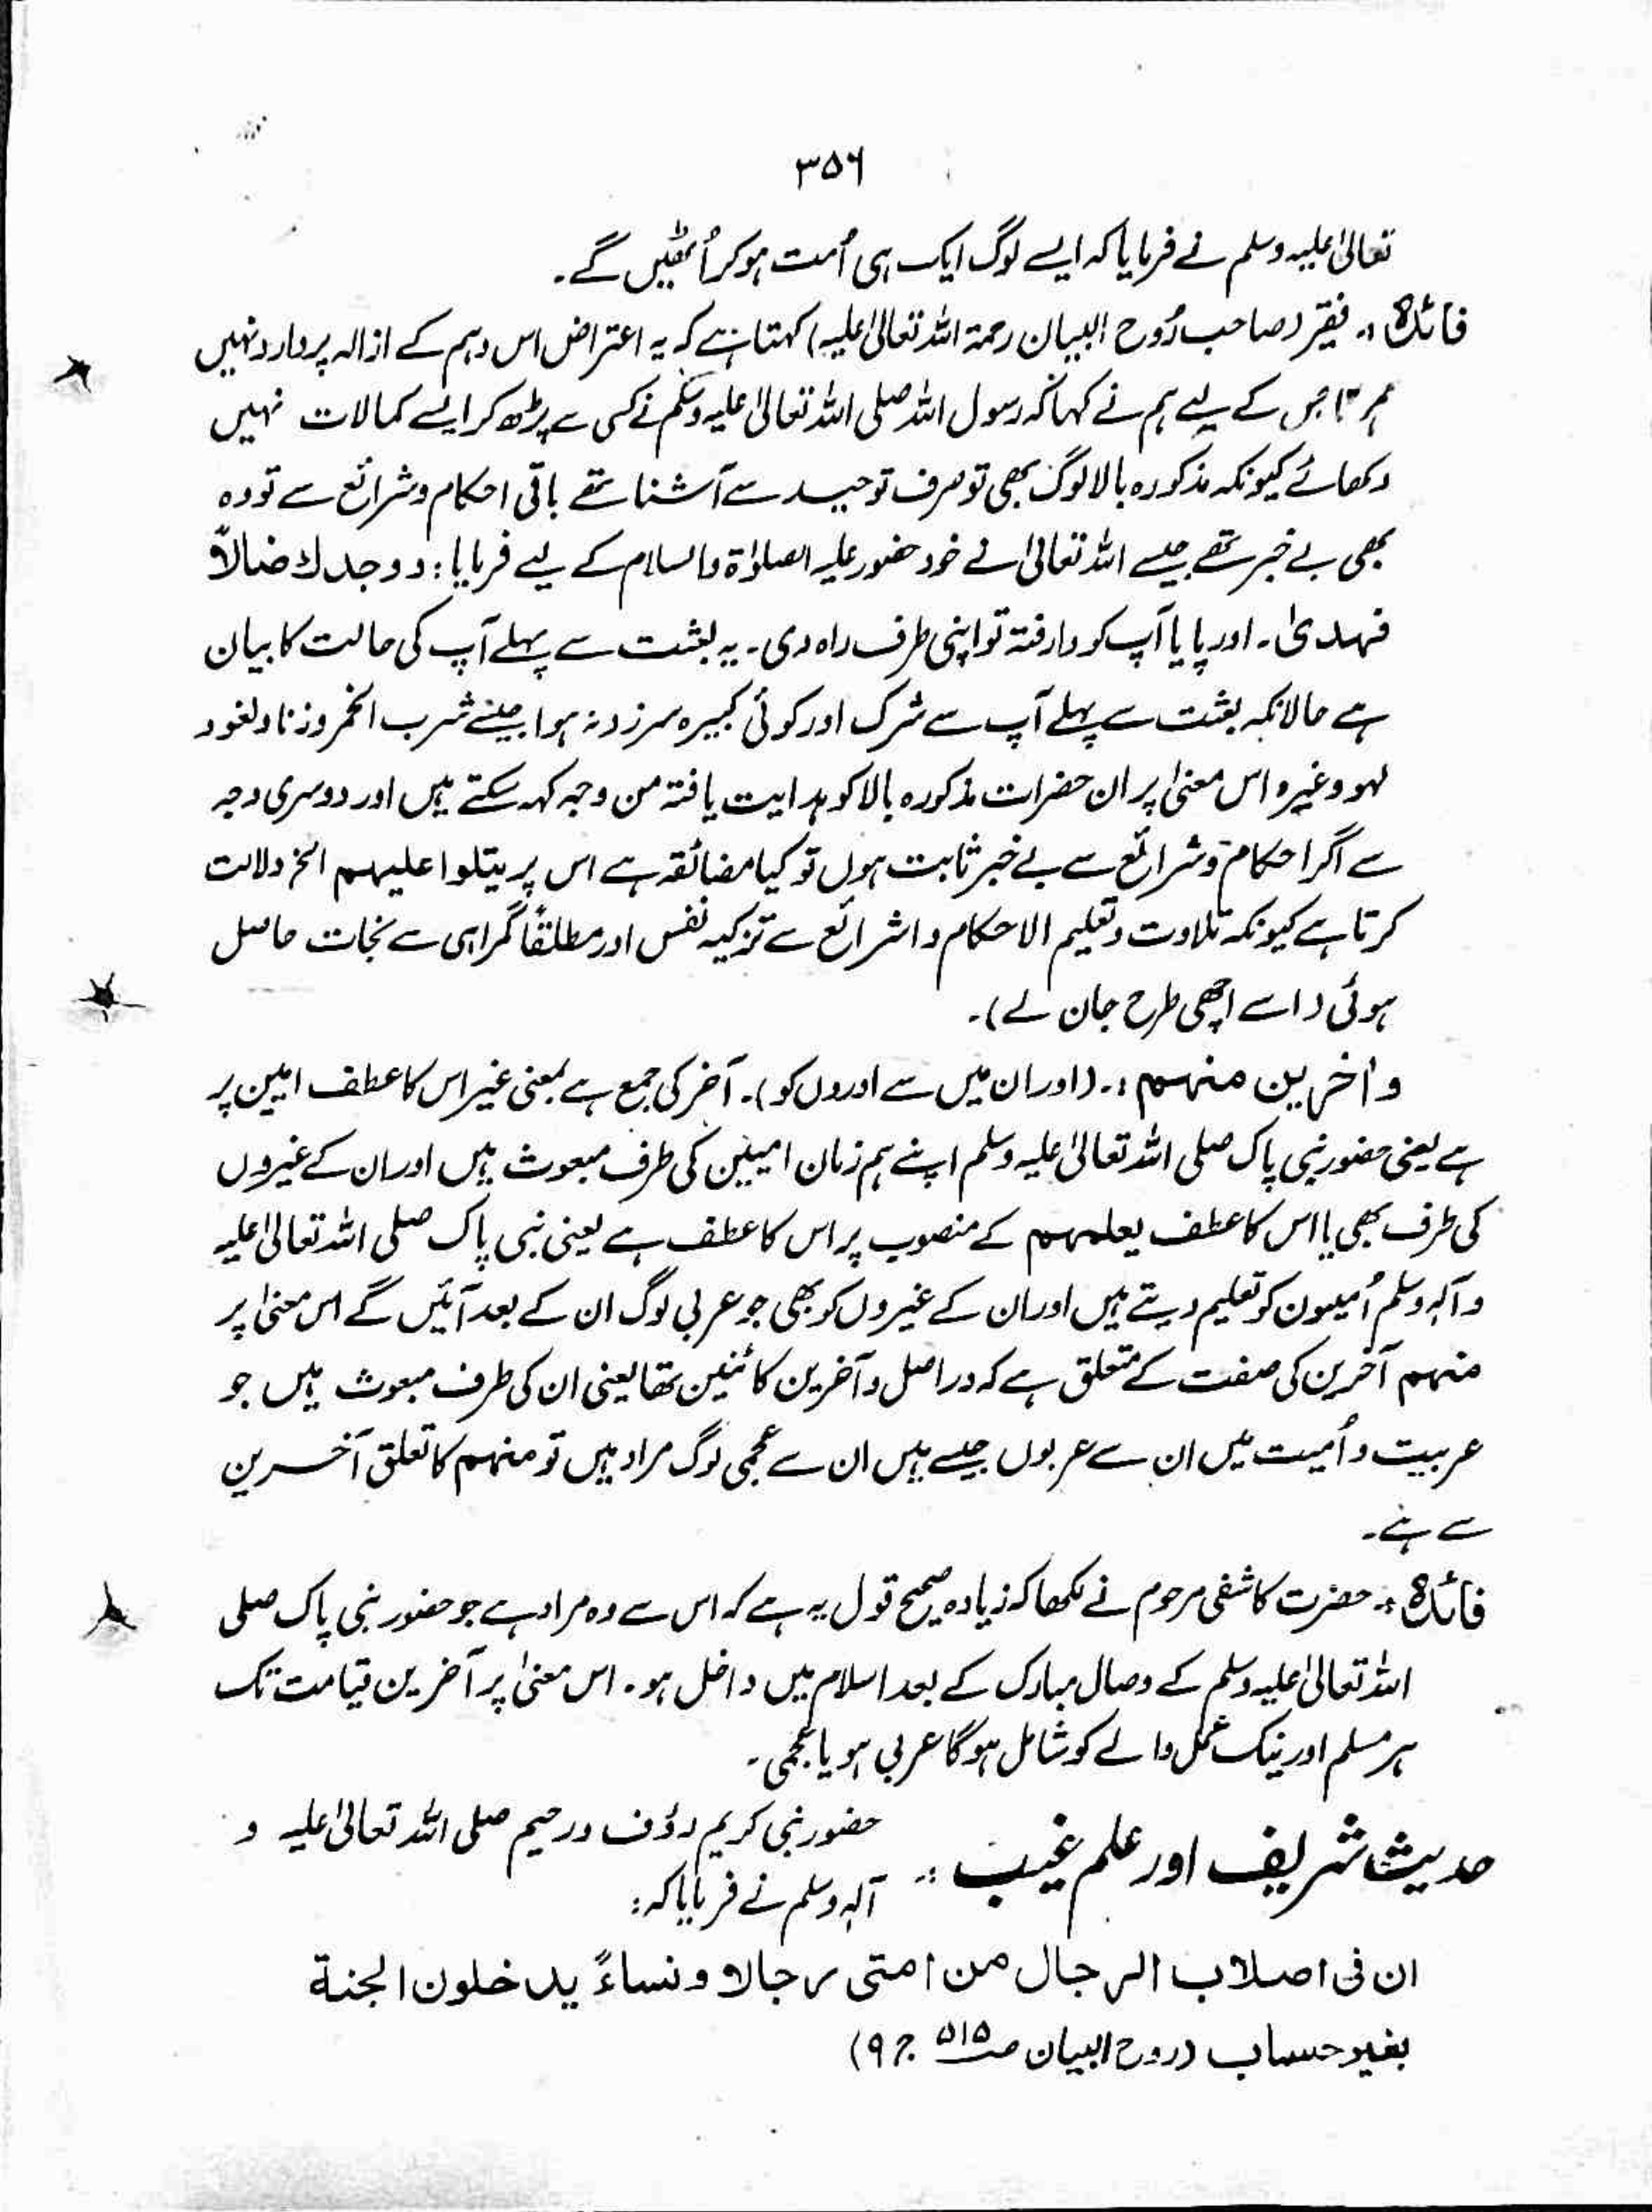 ۳۵۶
تعالیٰ علیہ وسلم نے فرمایا کہ ایسے لوگ ایک ہی اُمت ہو کر اُٹھیں گے۔
فائدہ:۔ فقیر (صاحب رُوح البیان رحمۃ اللہ تعالیٰ علیہ) کہتا ہے کہ یہ اعتراض اس وہم کے ازالہ پر وارد نہیں
ہوتا جس کے لیے ہم نے کہا کہ رسول اللہ صلی اللہ تعالیٰ علیہ وسلم نے کسی سے پڑھ کر ایسے کمالات نہیں
دکھائے کیونکہ مذکورہ بالا لوگ بھی تو صرف توحید سے آشنا تھے باقی احکام و شرائع سے تو وہ
بھی بے خبر تھے جیسے اللہ تعالیٰ نے خود حضور علیہ الصلوٰۃ والسلام کے لیے فرمایا: ووجدك ضالاً
فهدىٰ۔ اور پایا آپ کو وارفتہ تو اپنی طرف راہ دی۔ یہ بعثت سے پہلے آپ کی حالت کا بیان
ہے حالانکہ بعثت سے پہلے آپ سے شرک اور کوئی کبیرہ سرزد نہ ہوا جیسے شرب الخمر و زنا و لغو و
لہو وغیرہ اس معنیٰ پر ان حضرات مذکورہ بالا کو ہدایت یافتہ من وجہ کہہ سکتے ہیں اور دوسری وجہ
سے اگر احکام و شرائع سے بے خبر ثابت ہوں تو کیا مضائقہ ہے اس پر یتلوا علیہم الخ دلالت
کرتا ہے کیونکہ تلاوت و تعلیم الاحکام و اشرائع سے تزکیہ نفس اور مطلقاً گمراہی سے نجات حاصل
ہوئی (اسے اچھی طرح جان لے)۔
وأخرین منہم:۔ (اور ان میں سے اوروں کو)۔ آخر کی جمع ہے بمعنی غیر اس کا عطف امیین پر
ہے یعنی حضور نبی پاک صلی اللہ تعالیٰ علیہ وسلم اپنے ہم زمان امیین کی طرف مبعوث ہیں اور ان کے غیروں
کی طرف بھی یا اس کا عطف یعلمہم کے منصوب پر اس کا عطف ہے یعنی نبی پاک صلی اللہ تعالیٰ علیہ
وآلہ وسلم اُمیون کو تعلیم دیتے ہیں اور ان کے غیروں کو بھی جو عربی لوگ ان کے بعد آئیں گے اس معنیٰ پر
منہم آخرین کی صفت کے متعلق ہے کہ دراصل وآخرین کائنین تھا یعنی ان کی طرف مبعوث ہیں جو
عربیت و اُمیت میں ان سے عربوں جیسے ہیں ان سے عجمی لوگ مراد ہیں تو منہم کا تعلق آخرین
سے ہے۔
فائدہ:۔ حضرت کاشفی مرحوم نے لکھا کہ زیادہ صحیح قول یہ ہے کہ اس سے وہ مراد ہے جو حضور نبی پاک صلی
اللہ تعالیٰ علیہ وسلم کے وصال مبارک کے بعد اسلام میں داخل ہو۔ اس معنیٰ پر آخرین قیامت تک
ہر مسلم اور نیک عمل والے کو شامل ہوگا عربی ہو یا عجمی۔
حدیث شریف اور علم غیب:۔ حضور نبی کریم رؤف و رحیم صلی اللہ تعالیٰ علیہ و
آلہ وسلم نے فرمایا کہ:
ان فی اصلاب الرجال من امتی رجالا و نساءً یدخلون الجنة
بغیر حساب (روح البیان ص ۵۱۵ ج ۹)